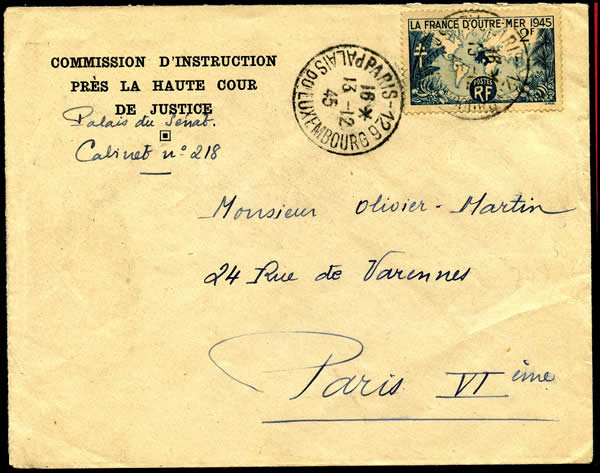 COMMISSION D'INSTRUCTION
PRÈS LA HAUTE COUR
DE JUSTICE
Palais du Sénat.
Cabinet n° 218
PARIS-12 92
16 *
13-12
45
PALAIS DU LUXEMBOURG
LA FRANCE D'OUTRE-MER 1945
2F
POSTES
RF
Monsieur Olivier-Martin
24 Rue de Varennes
Paris VI ème